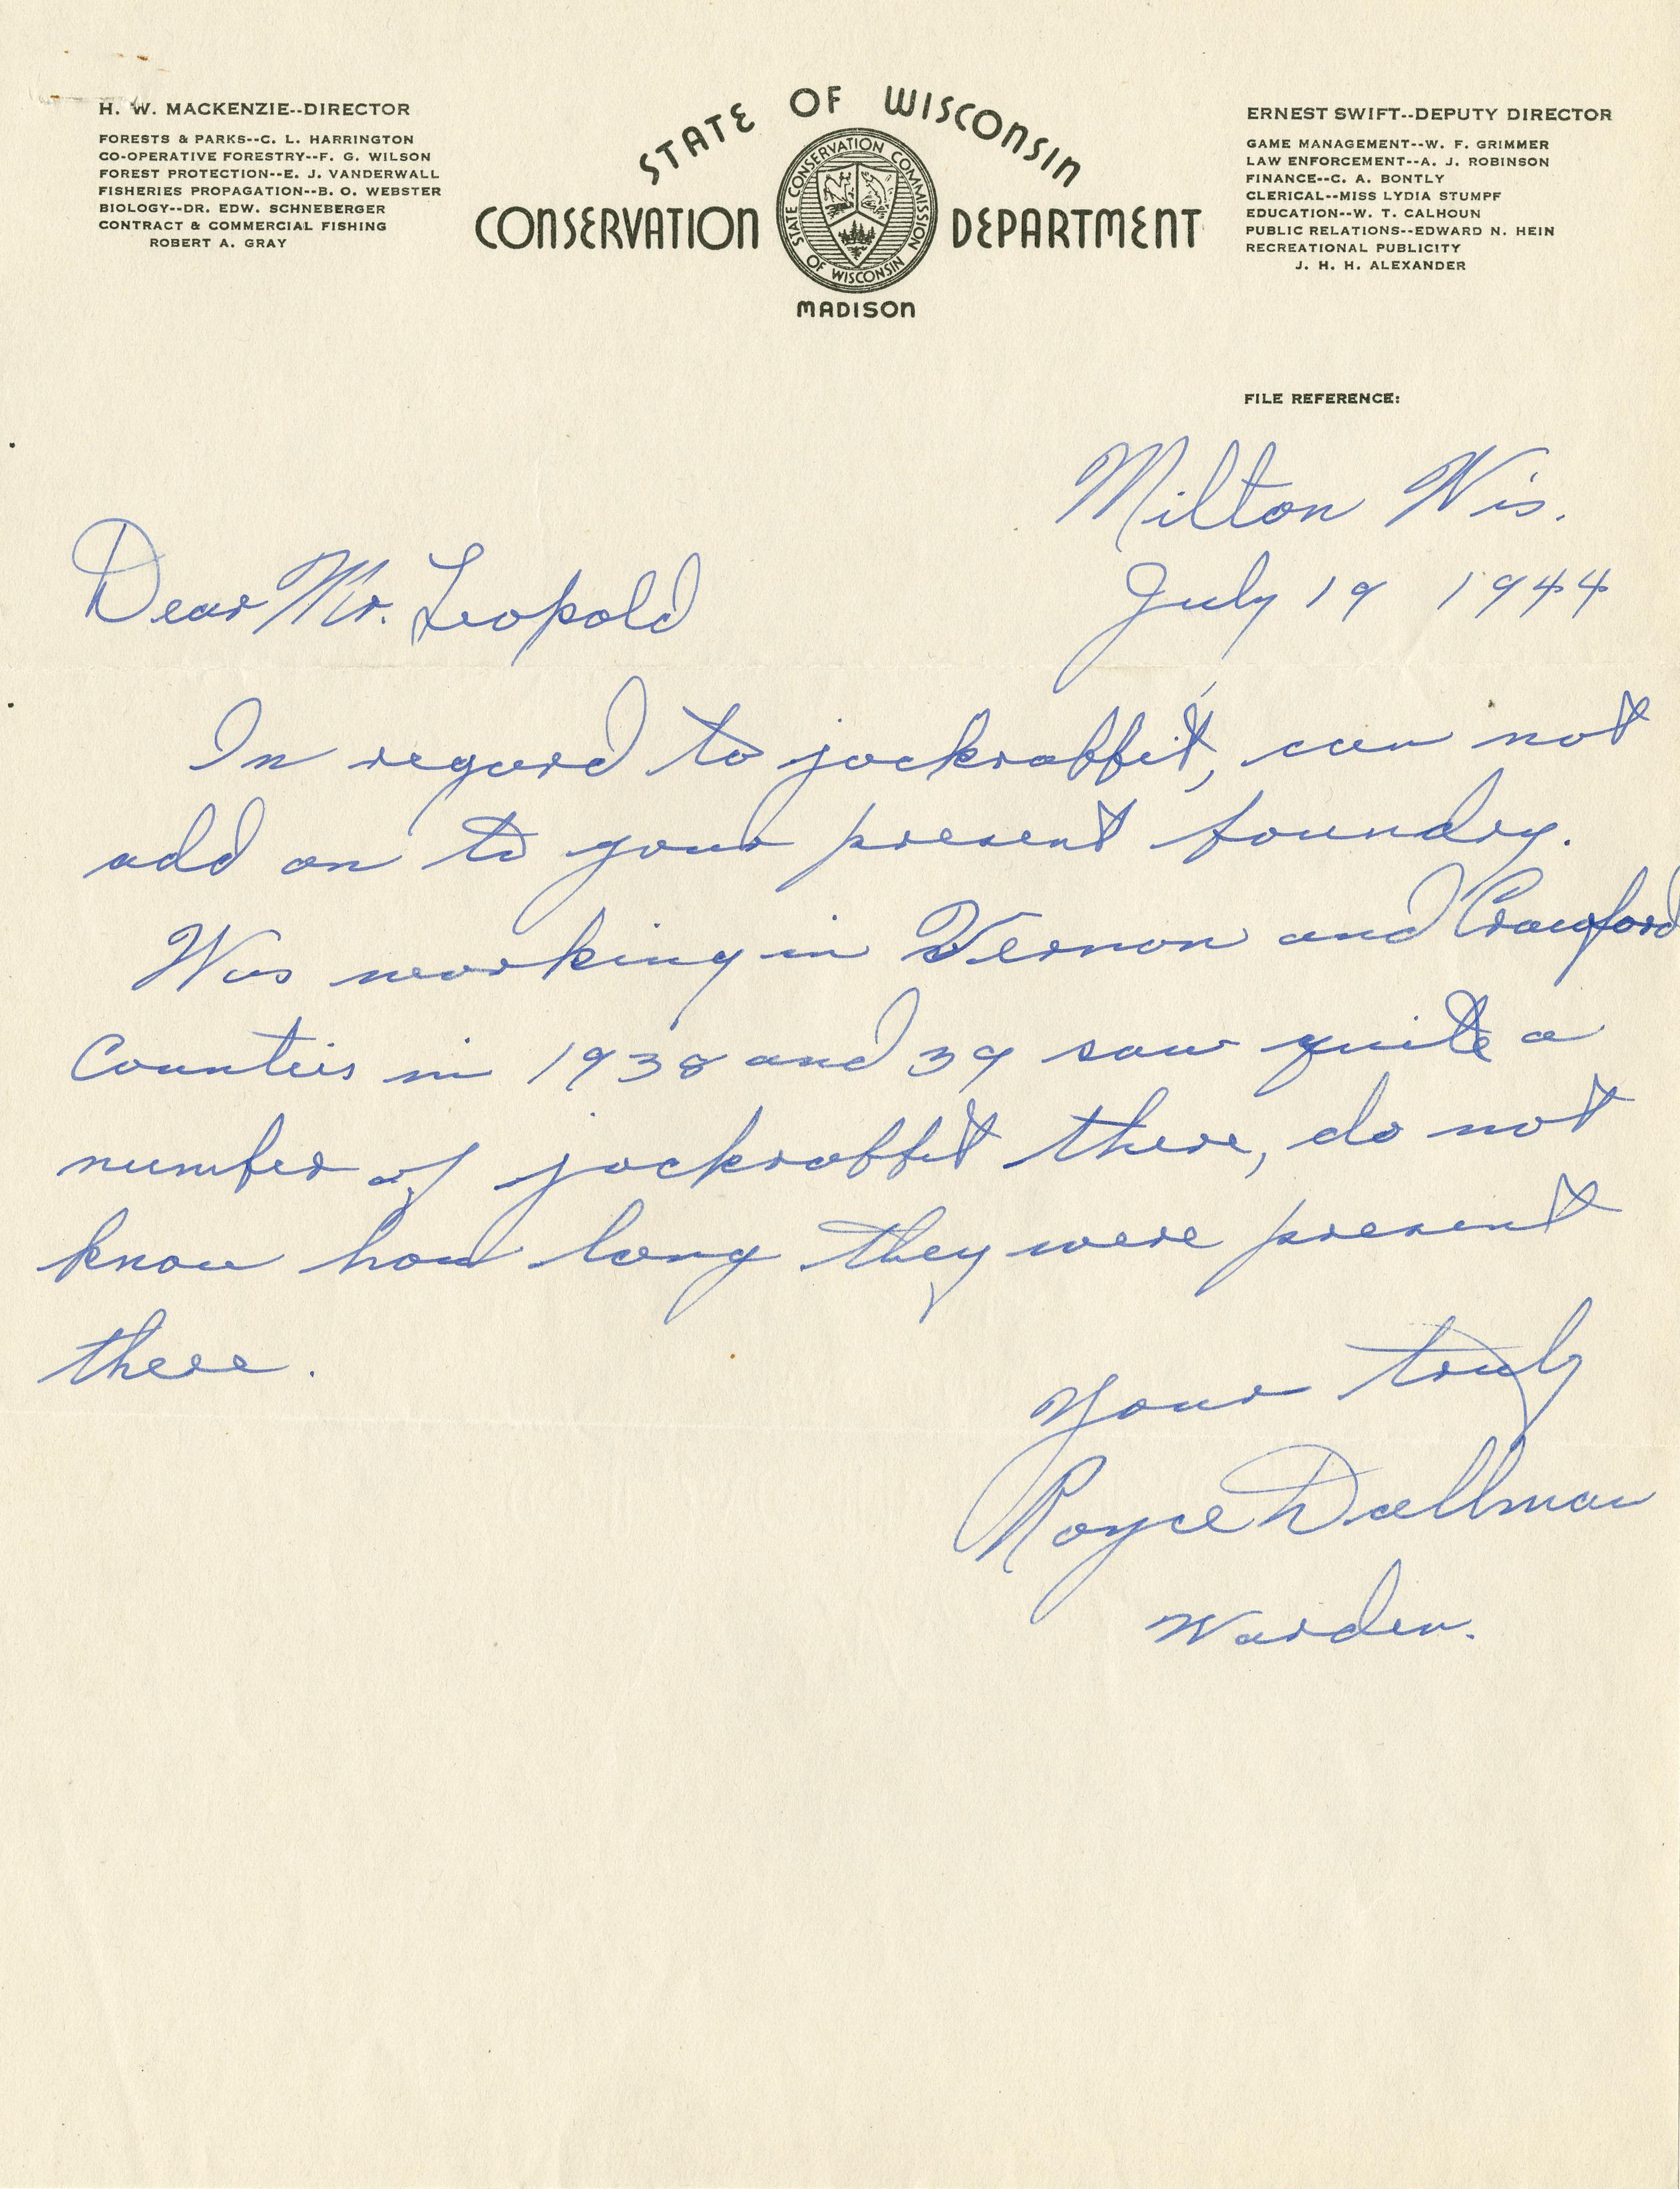 H. W. MACKENZIE--DIRECTOR
FORESTS & PARKS--C. L. HARRINGTON
CO-OPERATIVE FORESTRY--F. G. WILSON
FOREST PROTECTION--E. J. VANDERWALL
FISHERIES PROPAGATION--B. O. WEBSTER
BIOLOGY--DR. EDW. SCHNEBERGER
CONTRACT & COMMERCIAL FISHING
ROBERT A. GRAY
STATE OF WISCONSIN
CONSERVATION DEPARTMENT
STATE CONSERVATION COMMISSION
OF WISCONSIN
MADISON
ERNEST SWIFT--DEPUTY DIRECTOR
GAME MANAGEMENT--W. F. GRIMMER
LAW ENFORCEMENT--A. J. ROBINSON
FINANCE--C. A. BONTLY
CLERICAL--MISS LYDIA STUMPF
EDUCATION--W. T. CALHOUN
PUBLIC RELATIONS--EDWARD N. HEIN
RECREATIONAL PUBLICITY
J. H. H. ALEXANDER
FILE REFERENCE:
Milton Wis.
July 19 1944
Dear Mr. Leopold
In regard to jackrabbit, can not
add on to your present foundry.
Was working in Vernon and Crawford
Counties in 1938 and 39 saw quite a
number of jackrabbit there, do not
know how long they were present
there.
Your truly
Royce Dallman
Warden.